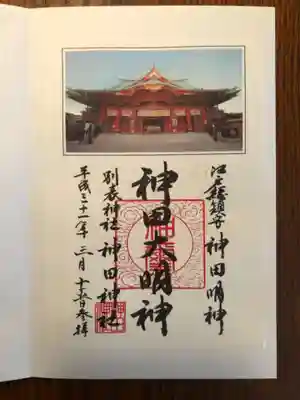 江戸総鎮守 神田明神
神田大明神
別表神社 神田神社
平成三十一年 三月 十五日参拝